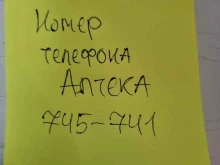 Номер
телефона
Аптека
745-741